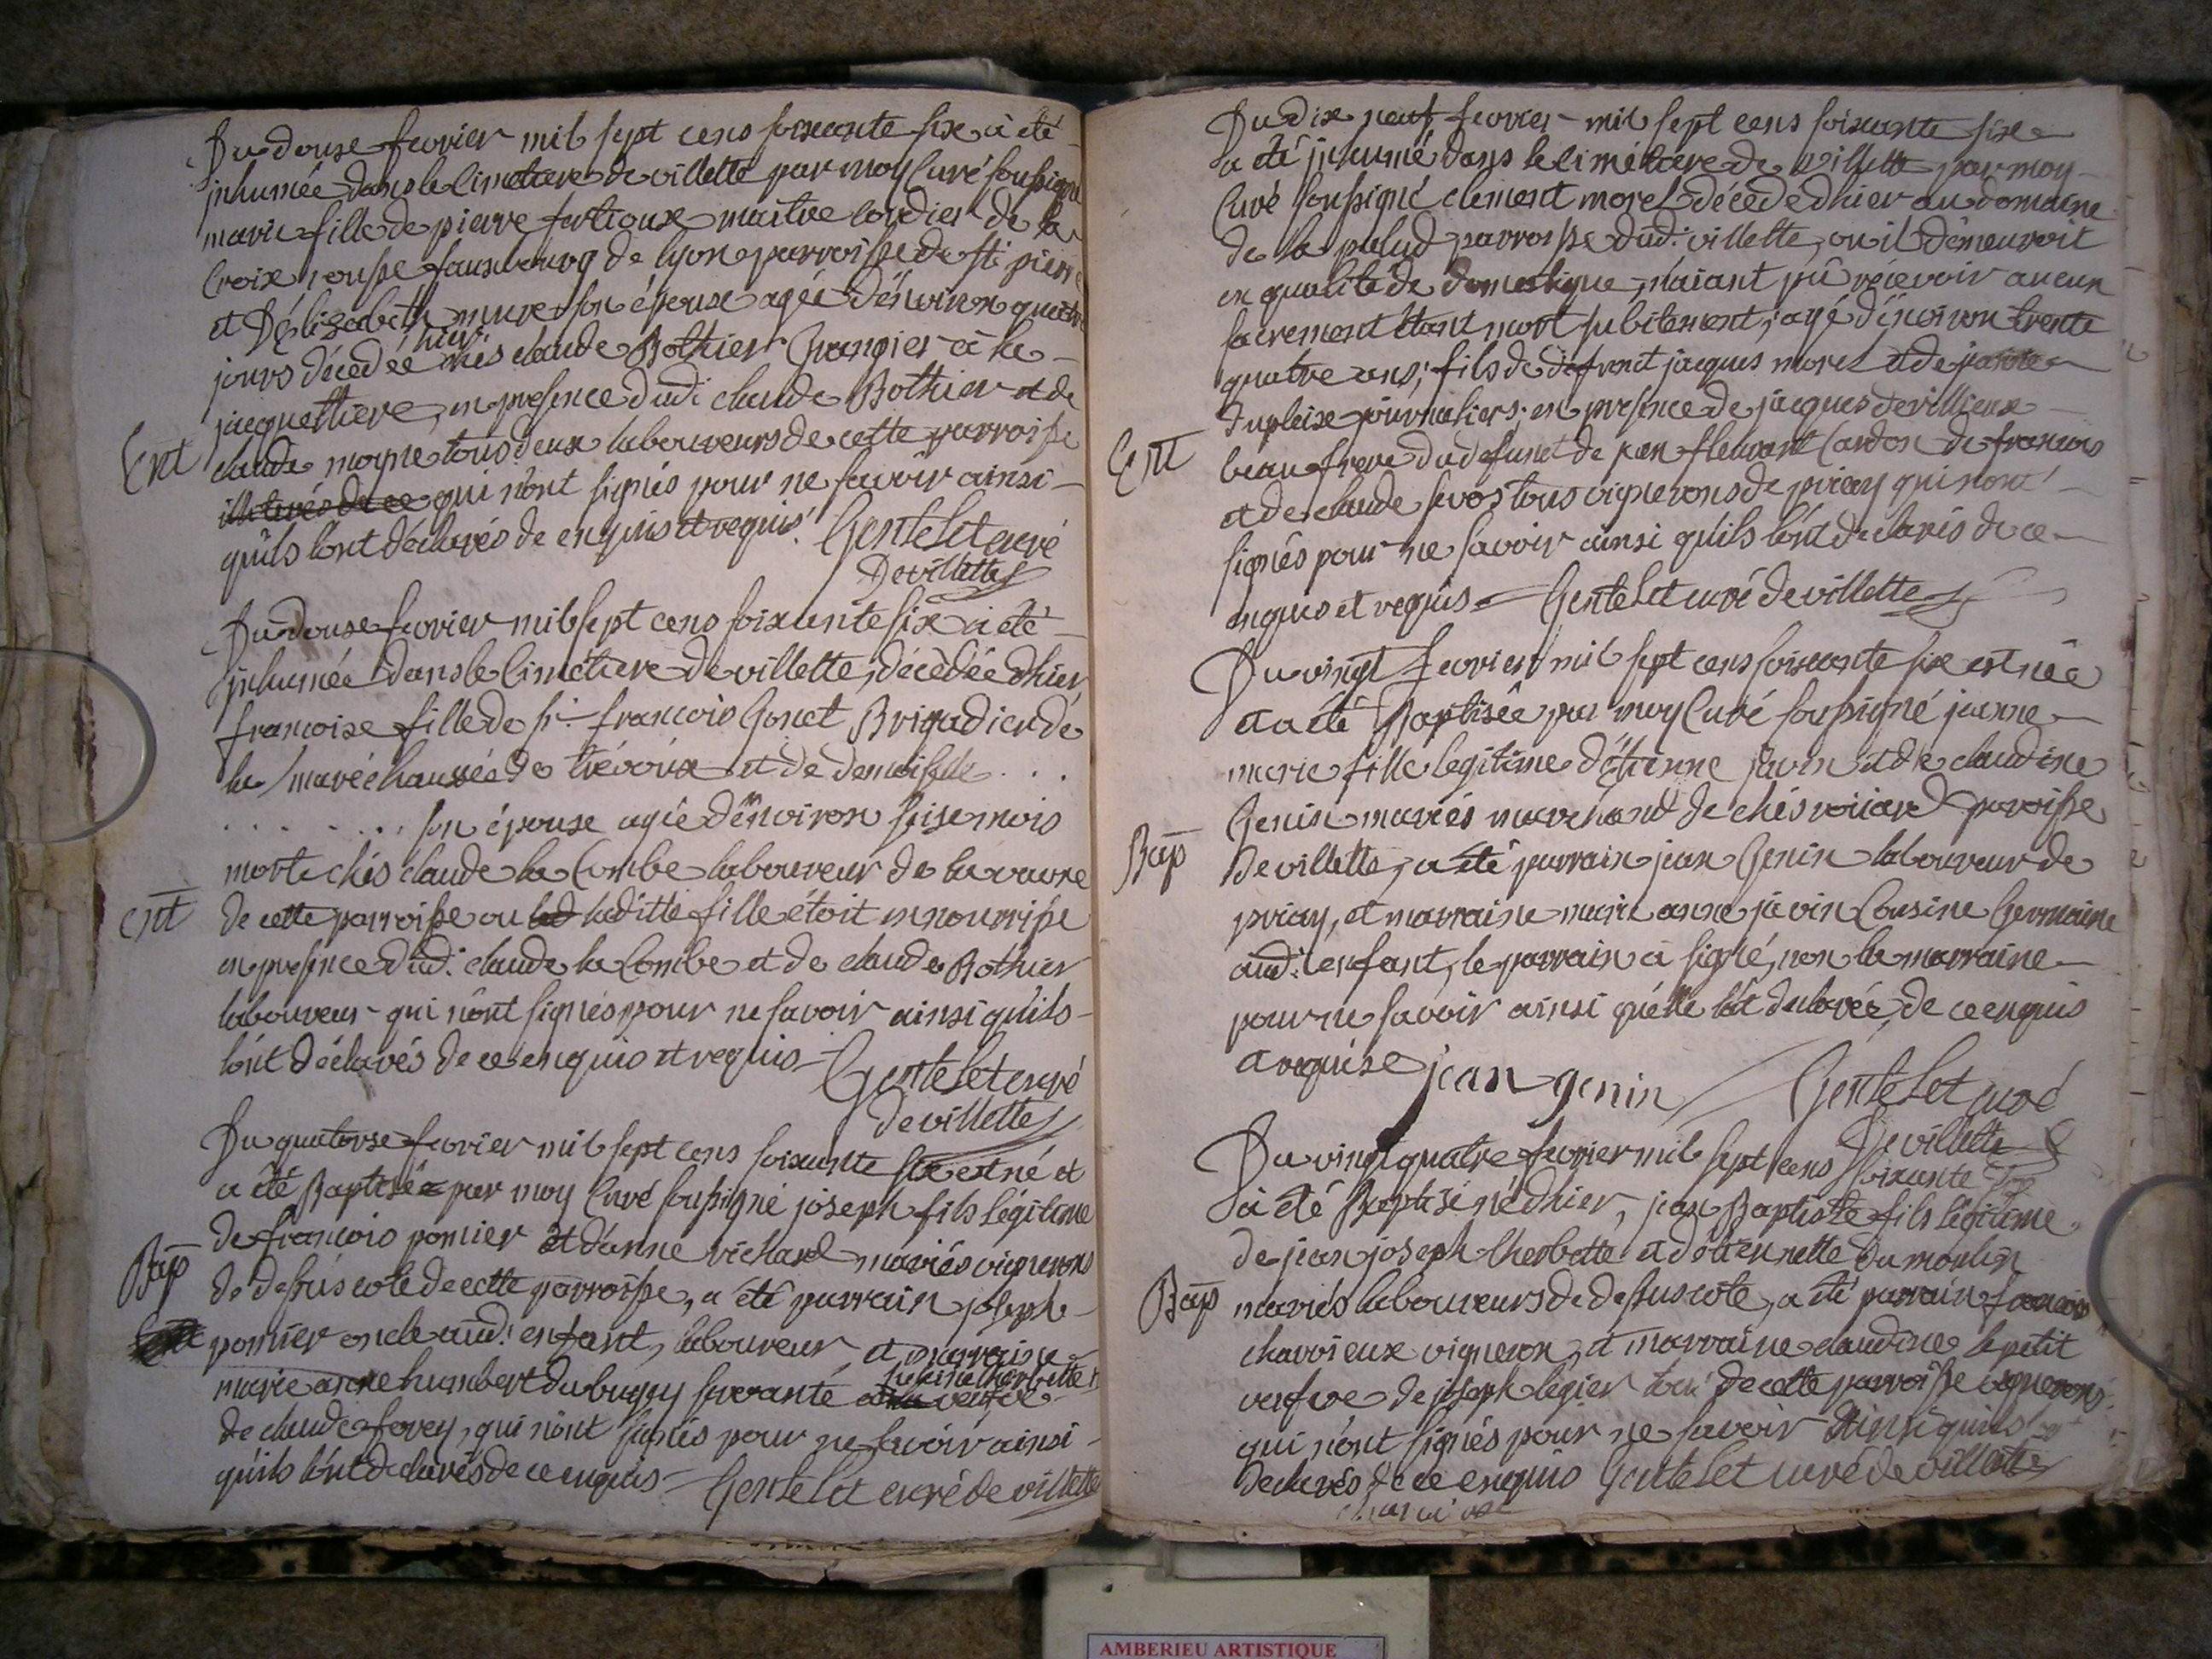 Du douse fevrier mil sept cens soixante six a été
inhumée dans le Cimetiere de villette par moy Curé soussigné
marie fille de pierre fortioux maitre cordier de la
Croix rousse fauxbourg de lyon parroisse de St pierre
et D'élizabeth mure son épouse agée D'énviron quatre
jours décedée hier chés claude Bothier Grangier à la
jacquettiere, en presence dud: claude Bothier et de
Ent
claude moyne tous deux laboureurs de cette parroisse
qui n'ont signés pour ne savoir ainsi
qu'ils l'ont déclarés de enquis et requis. Gentelet curé
De villette
Du douse fevrier mil sept cens soixante six a été
inhumée dans le Cimétiere de villette, décédée d'hier
francoise fille de sr. francois Gonet Brigadier de
la maréchaussée de trévoux et de demoiselle . . .
. . . . . . . son épouse agée d'énviron seise mois
morte chés claude la Combe laboureur de la vavre
Ent
de cette parroisse ou led laditte fille étoit en nourrisse
en presence dud: claude la Combe et de claude Bothier
laboureur qui n'ont signés pour ne savoir ainsi qu'ils
l'ont déclarés de ce enquis et requis Gentelet curé
de villette
Du quatorse fevrier mil sept cens soixante six est né et
a été Baptisé par moy Curé soussigné joseph fils légitime
de francois ponier et d'anne richard mariés vignerons
Bap
de dessus cote de cette parroisse, a été parrain joseph
ponier oncle aud: enfant, laboureur et marraine
marie anne humbert du bugey servante veufve
de claude ferey, qui n'ont signés pour ne savoir ainsi
qu'ils l'ont declarés de ce enquis Gentelet curé de villette
Du dix neuf fevrier mil sept cens soixante six
a été inhumé dans le cimétiere de villette par moy
Curé soussigné clement morel décedé d'hier au domaine
de la palud parroisse dud: villette, ou il démeuroit
en qualité de domestique, n'aiant pû récevoir aucun
sacrement étant mort subitement, agé d'énviron trente
quatre ans, fils de défunt jacques morel et de jeanne
Dupleix journaliers; en presence de jacques devillieux
Ent
beau frere du défunt de jean fleurant Cardon de francois
et de claude sevos tous vignerons de priay qui n'ont
signés pour ne savoir ainsi qu'ils l'ont declarés de ce
enquis et requis Gentelet curé de villette
Du vingt fevrier mil sept cens soixante six est née
et a été Baptisée par moy Curé soussigné jeanne
marie fille legitime d'étienne javin et de claudine
Genin mariés marchand de chés voiiard paroisse
Bap
de villette, a été parrain jean Genin laboureur de
priay, et marraine marie anne javin Cousine Germaine
aud: enfant, le parrain a signé, non la marraine
pour ne savoir ainsi qu'elle l'at declarée, de ce enquis
et requise jean genin Gentelet curé
De villette
Du vingt quatre fevrier mil sept cens soixante six
a été Baptisé né d'hier, jean Baptiste fils légitime
de jean joseph lherbette et d'étiennette du moulin
Bap
mariés laboureurs de dessus cote, a été parrain francois
charvieux vigneron, et marraine claudine le petit
veufve de joseph légier tous de cette parroisse vignerons
qui n'ont signés pour ne savoir Ainsi qu'ils
declarés de ce enquis Gentelet curé de villette
AMBERIEU ARTISTIQUE